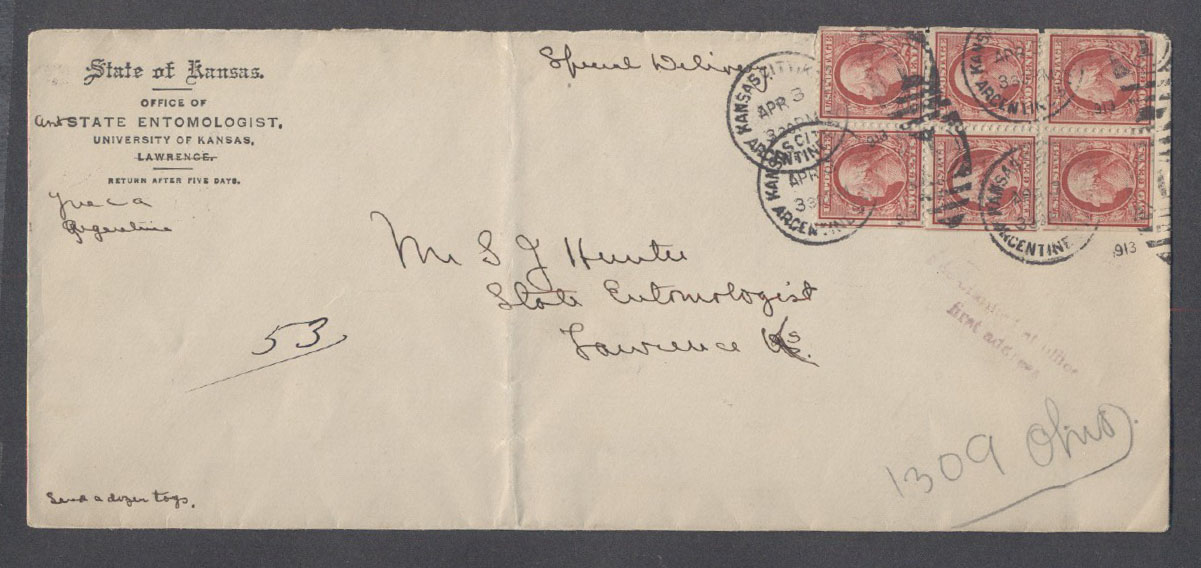 State of Kansas.
OFFICE OF
STATE ENTOMOLOGIST,
UNIVERSITY OF KANSAS,
LAWRENCE.
RETURN AFTER FIVE DAYS.
Argentine
Special Delivery
KANSAS CITY, K
APR 3
330PM
ARGENTINE
KANSAS CIT
APR
33
ARGENTINE
KANSAS
33
ARGENTINE
1913
KANSAS
33
ARGENTINE
1913
Mr S J Hunter
State Entomologist
Lawrence Ks.
53
at office
first address
1309 Ohio.
Send a dozen tags.